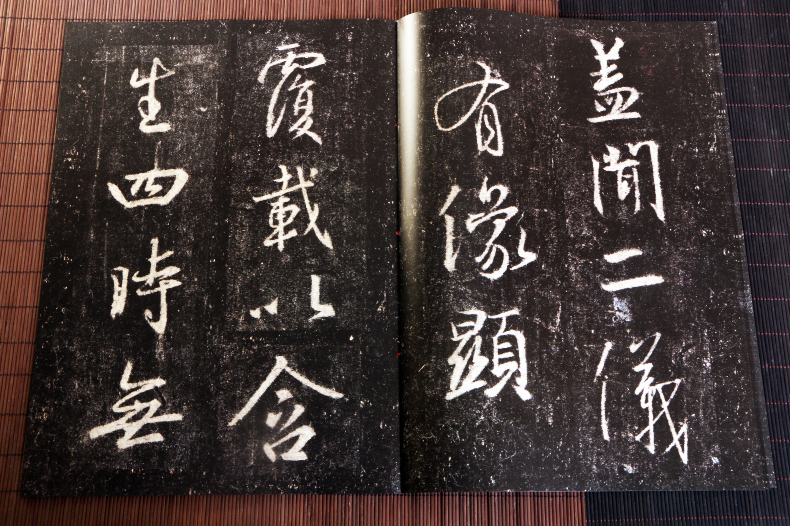 盖聞二儀
有像顯
覆載以含
生四時無